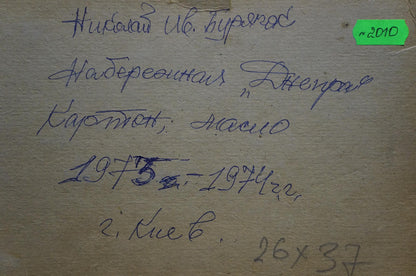 Николай Ив. Буряк
~2010
Набережная „Днепра"
Картон; масло
1973 г. - 1974 г.г.
г. Киев.
26 x 37